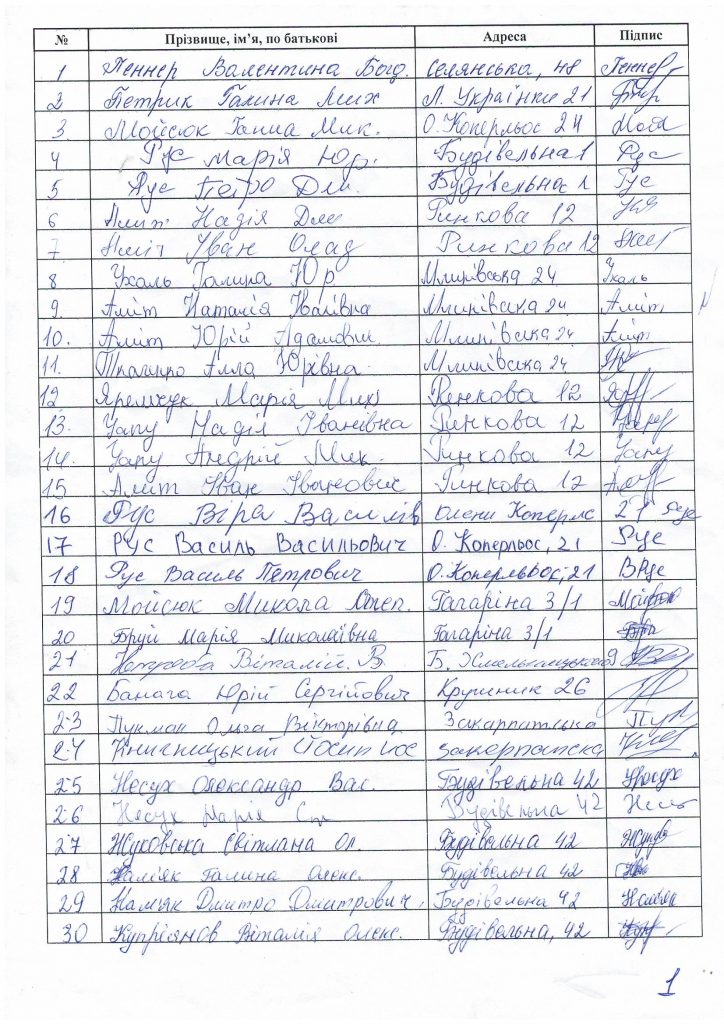 № Прізвище, ім'я, по батькові Адреса Підпис
1 Пеннер Валентина Богд. Селянська, 48 Пеннер
2 Петрик Галина Мих Л. Українки 21
3 Мойсюк Ганна Мик. О. Коперльос 24
4 Рус Марія Юр. Будівельна 1 Рус
5 Рус Петро Дм. Будівельна 1 Рус
6 Аміт Надія Ринкова 12
7 Аміт Іван Ринкова 12
8 Ухаль Галина Юр Млинівська 24 Ухаль
9. Аміт Наталія Іванівна Млинівська 24 Аміт
10. Аміт Юрій Адамович Млинівська 24 Аміт
11. Алла Юріївна Млинівська 24
12 Яремчук Марія Мих Ринкова 12
13. Цапу Надія Іванівна Ринкова 12
14. Цапу Андрій Мик. Ринкова 12 Цапу
15 Аміт Іван Іванович Ринкова 12
16 Рус Віра Василів Олени Коперльос 21 Рус
17 Рус Василь Васильович О. Коперльос, 21 Рус
18 Рус Василь Петрович О. Коперльос, 21 ВРус
19 Мойсюк Микола Степ. Гагаріна 3/1
20 Бруй Марія Миколаївна Гагаріна 3/1
21 Віталій. В. Б. Хмельницького 9
22 Банага Юрій Сергійович Крушник 26
23 Пукман Ольга Вікторівна Закарпатська Пук
24 Йосип Йос Закарпатска
25 Несух Олександр Вас. Будівельна 42 Несух
26 Несух Марія Будівельна 42
27 Жуковська Світлана Ол. Будівельна 42
28 Галина Олекс. Будівельна 42
29 Дмитро Дмитрович, Будівельна 42
30 Купріянов Віталія Олекс. Будівельна, 42
1